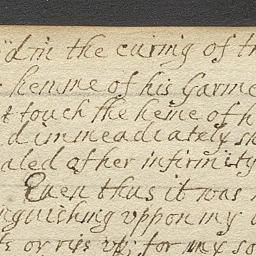 d in the curing of
hemme of his Garme
t touch the heme of h
d immeadiately sh
aled of her infirmity
Euen thus it was
nguishing vppon my
or rise vp; for my so